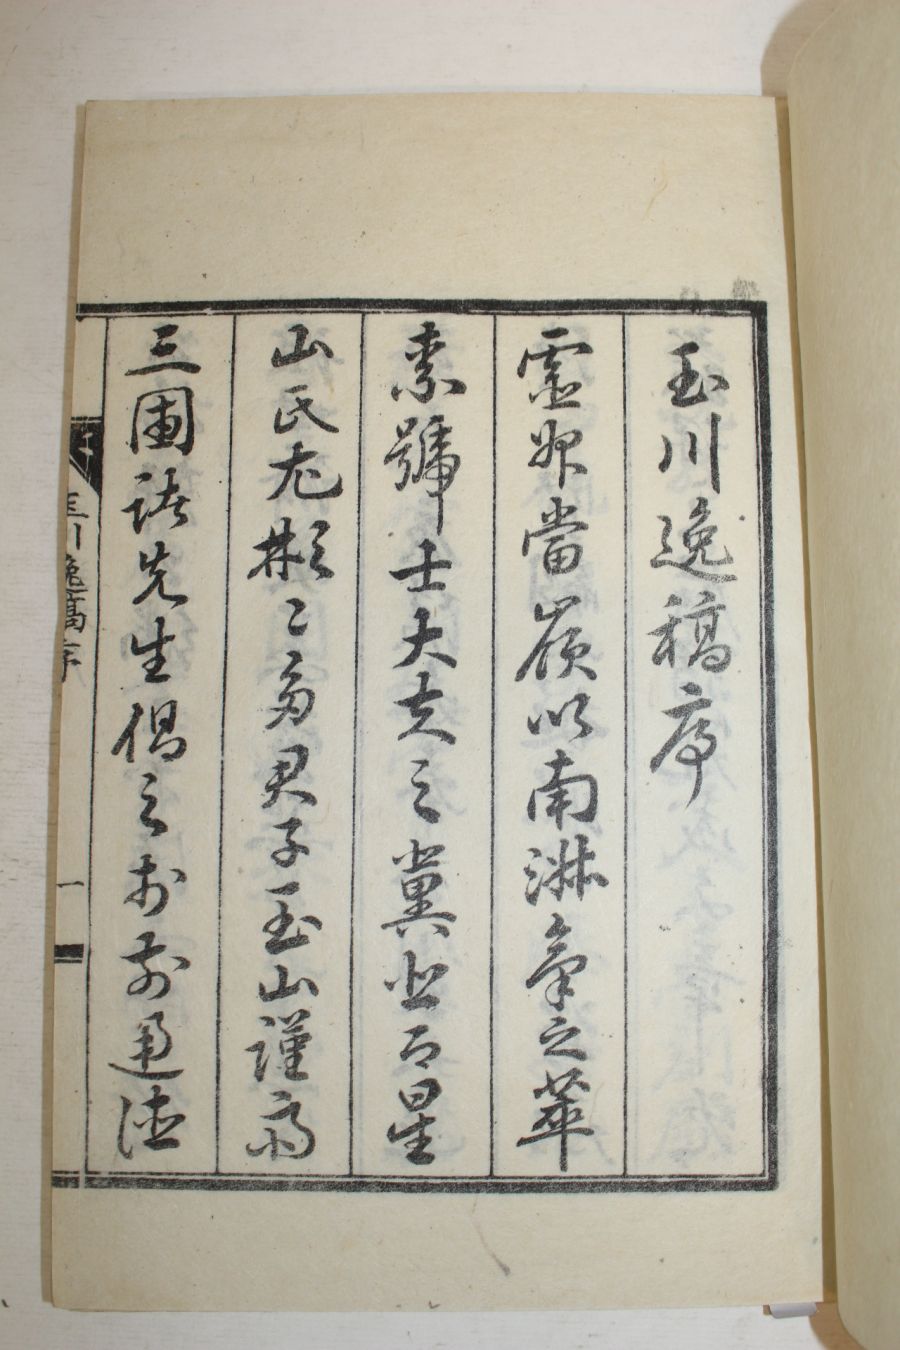 玉川逸稿序
靈州當嶺以南淋氣之萃
素號士大夫之冀北而星
山氏尤彬〻多君子玉山謹齋
三圃諸先生倡之於前通德
玉川逸稿序
一